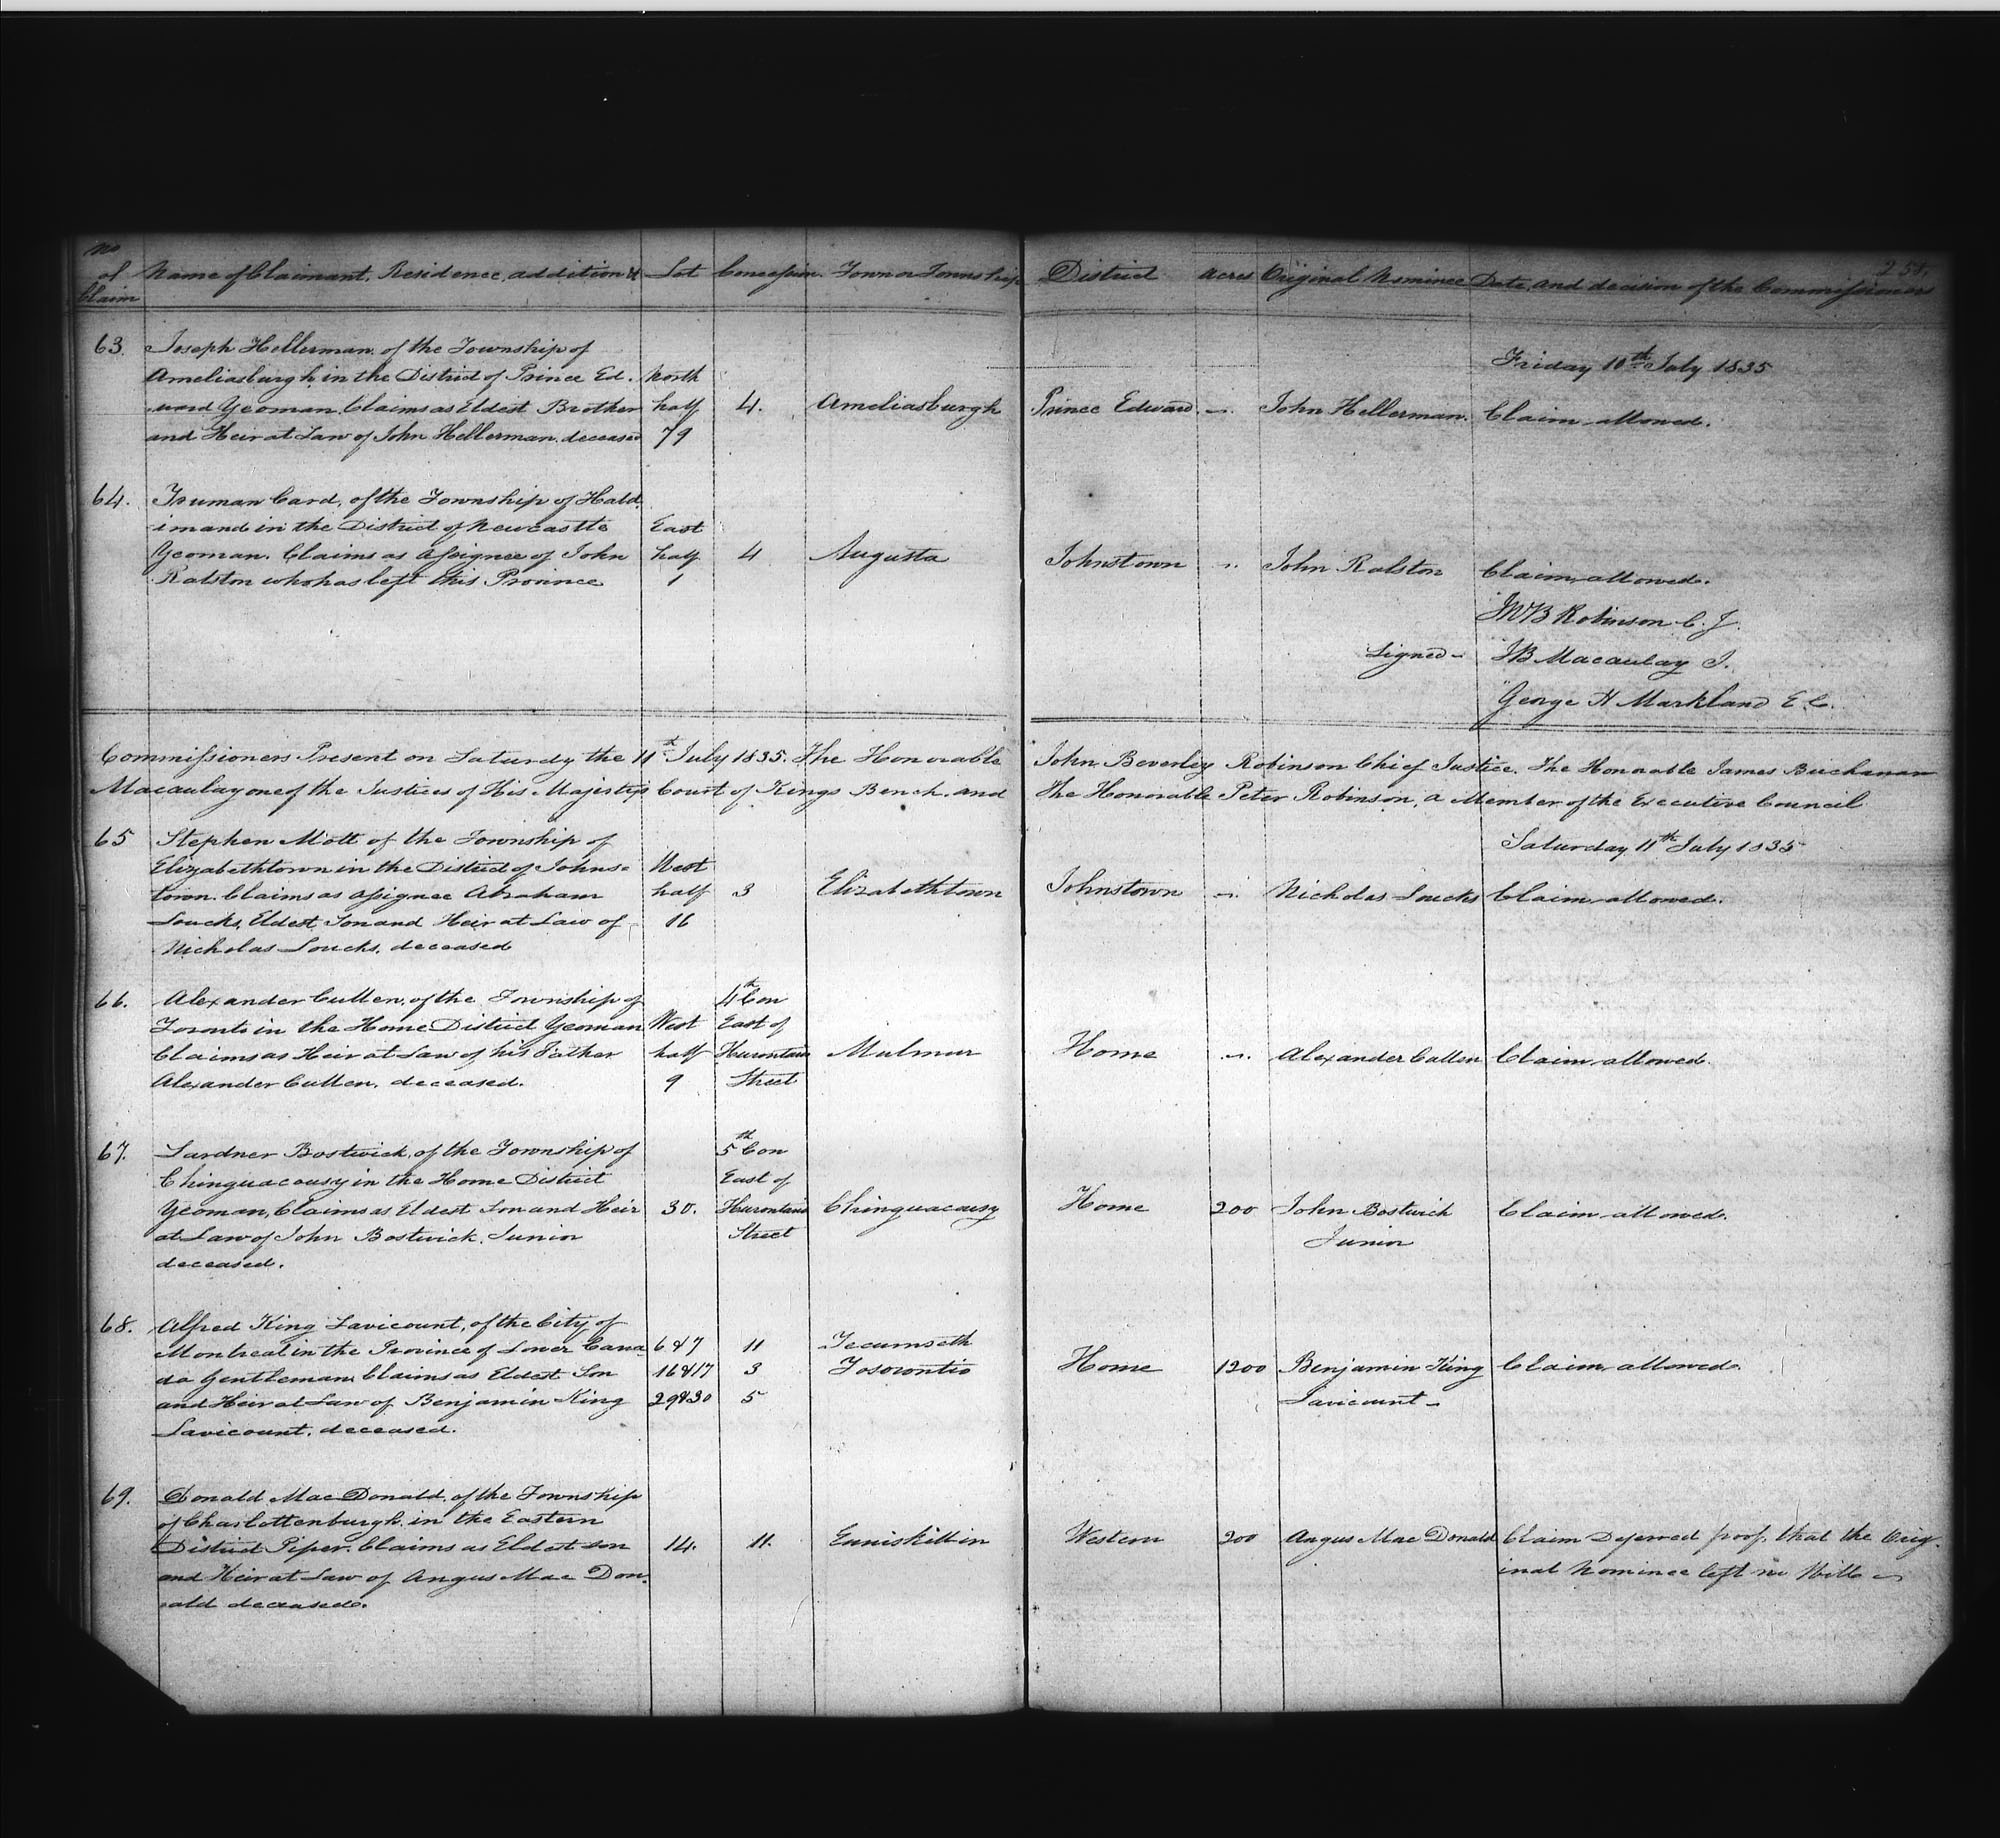 No of Claim
Name of Claimant, Residence, addition &
Lot
Concession
Town or Township
District
acres
Original Nominee
Date, and decision of the Commissioners
63.
Joseph Hellerman, of the Township of
Ameliasburgh, in the District of Prince Ed-
ward Yeoman, Claims as Eldest Brother
and Heir at Law of John Hellerman, deceased
North
half
79
4.
Ameliasburgh
Prince Edward
John Hellerman.
Friday 10th July 1835
Claim allowed.
64.
Truman Card, of the Township of Hald.
imand in the District of Newcastle
Yeoman. Claims as Assignee of John
Ralston who has left this Province
East
half
1
4
Augusta
Johnstown
John Ralston
Claim allowed.
Signed
Jno B Robinson C. J.
JB Macaulay J.
George H Markland E. C.
Commissioners Present on Saturdy the 11th July 1835. The Honorable John Beverley Robinson Chief Justice. The Honorable James Buchanan
Macaulay one of the Justices of His Majestys Court of Kings Bench. and The Honorable Peter Robinson, a Member of the Executive Council
65
Stephen Mott of the Township of
Elizabethtown in the District of Johns-
town. Claims as assignee Abraham
Loucks, Eldest Son and Heir at Law of
Nicholas Loucks, deceased
West
half
16
3
Elizabethtown
Johnstown
Nicholas Loucks
Saturday 11th July 1835
Claim allowed.
66.
Alexander Cullen, of the Township of
Toronto in the Home District Yeoman
Claims as Heir at Law of his Father
Alexander Cullen, deceased.
West
half
9
4th Con
East of
Hurontario
Street
Mulmur
Home
Alexander Cullen
Claim allowed.
67.
Lardner Bostwick, of the Township of
Chinguacousy in the Home District
Yeoman, Claims as Eldest Son and Heir
at Law of John Bostwick, Junior
deceased.
30.
5th Con
East of
Hurontario
Street
Chinguacousy
Home
200
John Bostwick
Junior
Claim allowed.
68.
Alfred King Lavicount, of the City of
Montreal in the Province of Lower Cana
da Gentleman Claims as Eldest Son
and Heir at Law of Benjamin King
Lavicount, deceased.
6 & 7
16 & 17
29 & 30
11
3
5
Tecumseth
Tosorontio
Home
1200
Benjamin King
Lavicount
Claim allowed.
69.
Donald Mac Donald, of the Township
of Charlottenburgh, in the Eastern
District Piper. Claims as Eldest son
and Heir at Law of Angus Mac Don.
ald deceased.
14.
11.
Enniskillin
Western
200
Angus Mac Donald
Claim Deferred proof, that the Orig-
inal Nominee left no Will